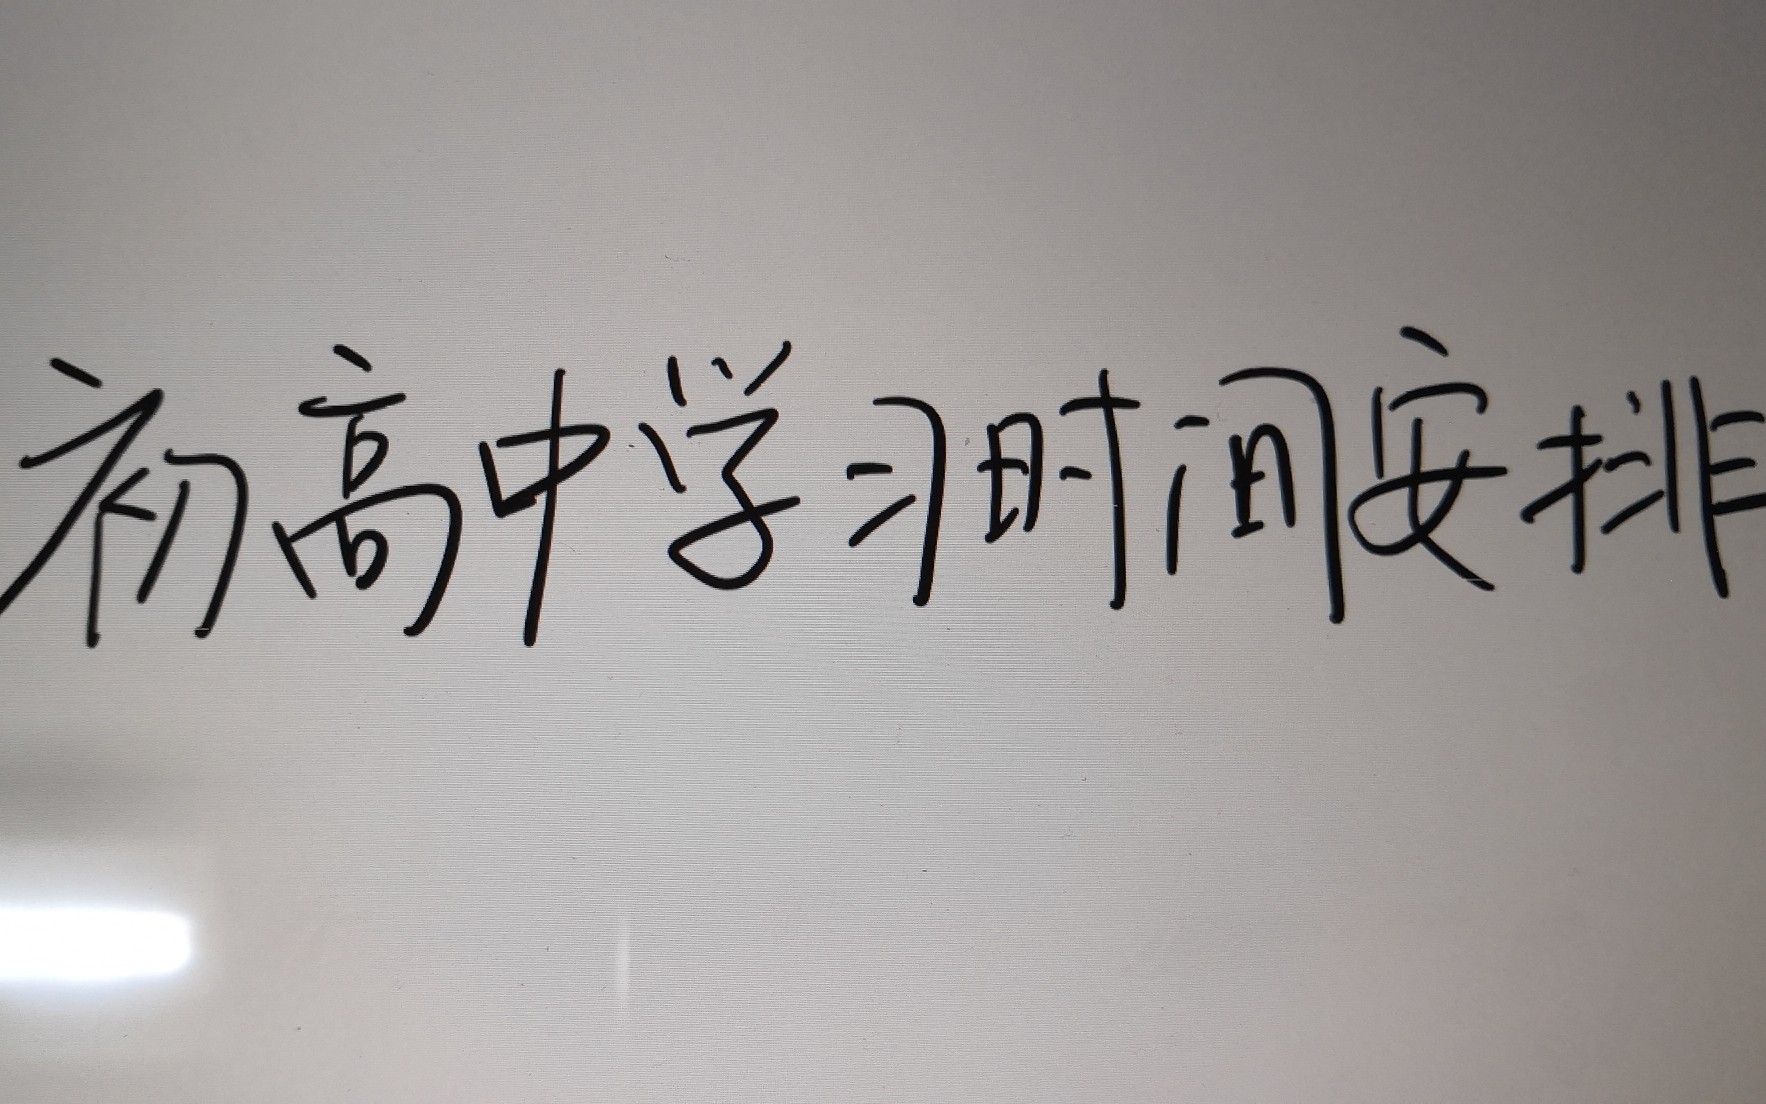 初高中学习时间安排